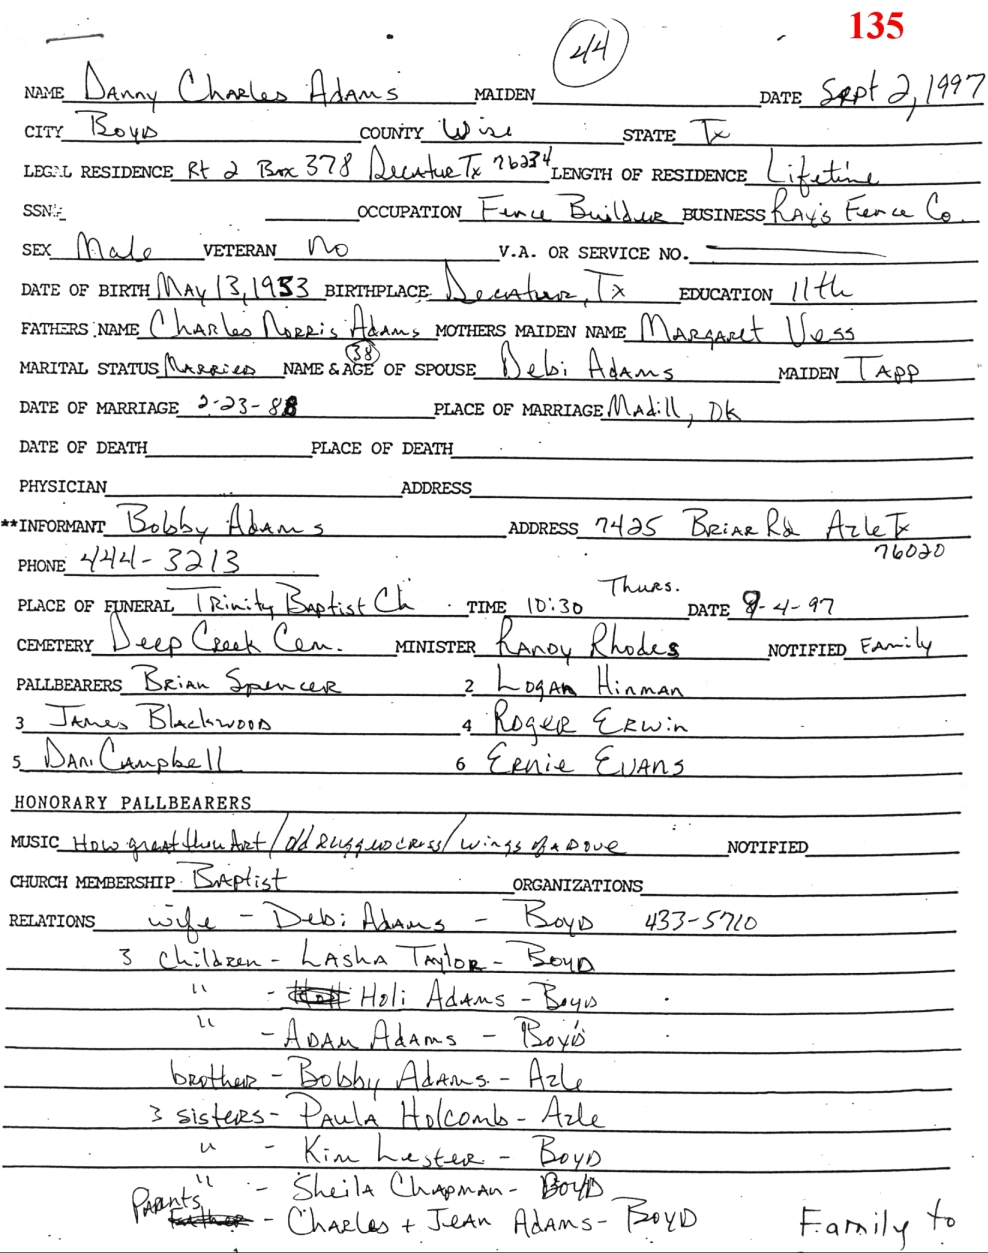 135
44
NAME Danny Charles Adams MAIDEN DATE Sept 2, 1997
CITY Boyd COUNTY Wise STATE Tx
LEGAL RESIDENCE Rt 2 Box 378 Decatur Tx 76234 LENGTH OF RESIDENCE Lifetime
SSN: OCCUPATION Fence Builder BUSINESS Ray's Fence Co.
SEX Male VETERAN No V.A. OR SERVICE NO.
DATE OF BIRTH May 13, 1953 BIRTHPLACE Decatur, Tx EDUCATION 11th
FATHERS NAME Charles Norris Adams MOTHERS MAIDEN NAME Margaret Vess
MARITAL STATUS Married NAME & AGE OF SPOUSE (38) Debi Adams MAIDEN Tapp
DATE OF MARRIAGE 2-23-88 PLACE OF MARRIAGE Madill, OK
DATE OF DEATH PLACE OF DEATH
PHYSICIAN ADDRESS
**INFORMANT Bobby Adams ADDRESS 7425 Briar Rd Azle Tx
76020
PHONE 444-3213
PLACE OF FUNERAL Trinity Baptist Ch TIME 10:30 Thurs. DATE 9-4-97
CEMETERY Deep Creek Cem. MINISTER Randy Rhodes NOTIFIED Family
PALLBEARERS Brian Spencer 2 Logan Hinman
3 James Blackwood 4 Roger Erwin
5 Dan Campbell 6 Ernie Evans
HONORARY PALLBEARERS
MUSIC How great thou Art / old rugged cross / wings of a Dove NOTIFIED
CHURCH MEMBERSHIP Baptist ORGANIZATIONS
RELATIONS wife - Debi Adams - Boyd 433-5710
3 Children - Lasha Taylor - Boyd
" - Holi Adams - Boyd
" - Adam Adams - Boyd
brother - Bobby Adams - Azle
3 sisters - Paula Holcomb - Azle
" - Kim Lester - Boyd
" - Sheila Chapman - Boyd
Parents - Charles + Jean Adams - Boyd Family to